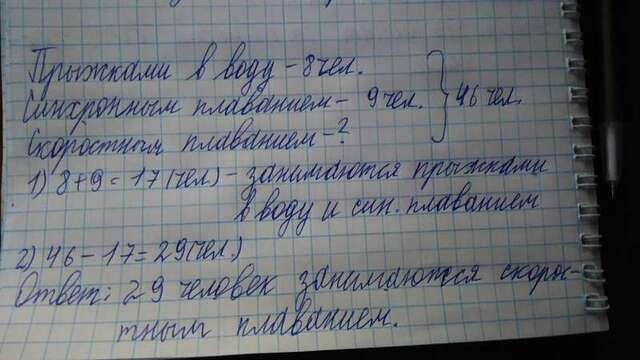 Прыжками в воду - 8 чел.
Синхронным плаванием - 9 чел. } 46 чел.
Скоростным плаванием - ?
1) 8 + 9 = 17 (чел) - занимаются прыжками
в воду и син. плаванием
2) 46 - 17 = 29 (чел.)
Ответ: 29 человек занимаются скорос-
тным плаванием.